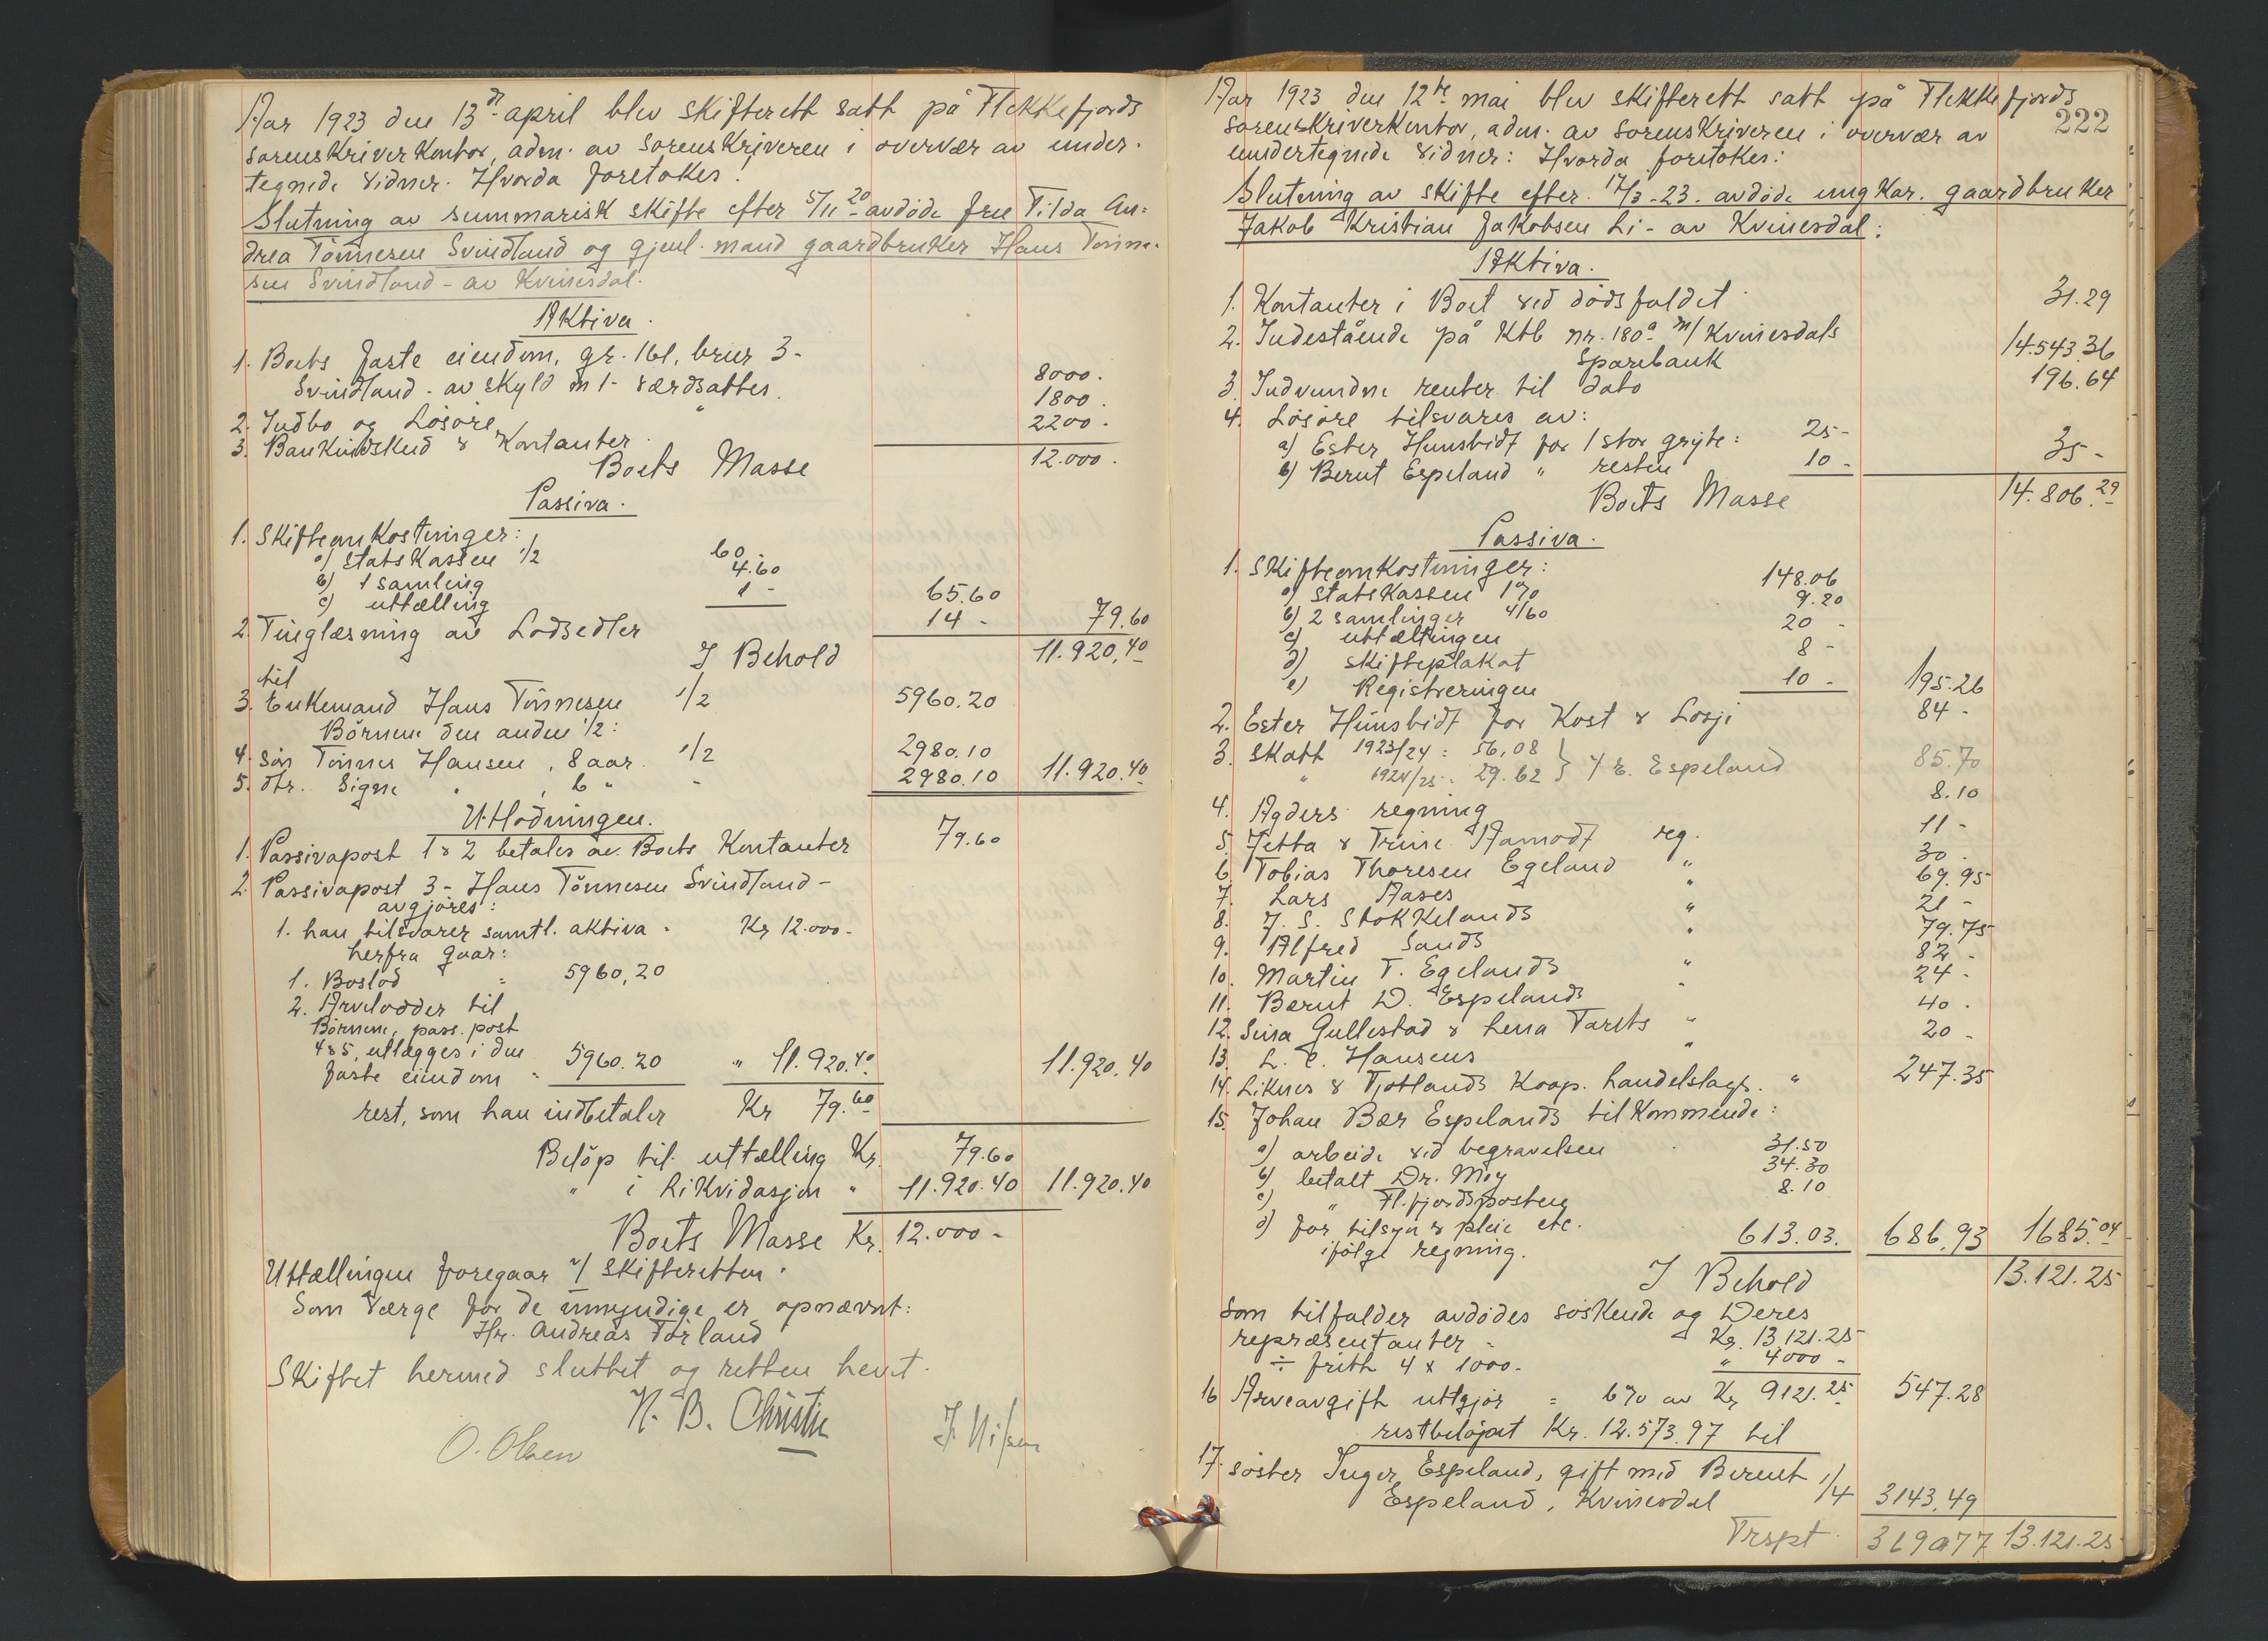 Aar 1923 den 13de april blev skifterett satt på Flekkefjords
sorenskriverkontor, adm. av sorenskriveren i overvær av under-
tegnede vidner. Hvorda foretokes:
Slutning av summarisk skifte efter 5/11 20 avdöde fru Tilda An=
drea Tönnesen Svindland og gjenl. mand gaardbruker Hans Tönne-
sen Svindland - av Kvinesdal.
Aktiva.
1. Boets faste eiendom, gr. 161, brur 3 -
Svindland - av skyld m 1 - værdsattes. 8000.
2. Indbo og Lösöre " 1800.
3. Bankindskud & Kontanter. 2200.
Boets Masse 12.000.
Passiva.
1. Skifteomkostninger:
a) statskassen 1/2 60.-
b) 1 samling 4.60
c) uttælling 1 - 65.60
2. Tinglæsning av Lodsedler 14 - 79.60
I Behold 11.920.40
til
3. Enkemand Hans Tönnesen 1/2 5960.20
Börnene den anden 1/2:
4. Sön Tönnes Hansen, 8 aar 1/2 2980.10
5. dtr. Signe " , 6 " - 2980.10 11.920.40
Utlodningen.
1. Passivapost 1 & 2 betales av Boets Kontanter 79.60
2. Passivapost 3 - Hans Tönnesen Svindland -
avgjöres:
1. han tilsvarer samtl. aktiva = Kr 12.000.-
herfra gaar:
1. Boslod = 5960,20
2. Arvelodder til
Börnene, pass. post
4 & 5, utlægges i den
faste eiendom = 5960.20 " 11.920.40 11.920.40
rest, som han indbetaler Kr 79.60
Belöp til uttælling Kr. 79.60
" i Likvidasjon " 11.920.40 11.920.40
Boets Masse Kr. 12.000 -
Uttællingen foregaar v/ skifteretten.
Som værge for de umyndige er opnævnt:
Hr. Andreas Törland
Skiftet hermed sluttet og retten hevet.
N. B. Christie
O. Olsen J. Nilsen
222
Aar 1923 den 12te mai blev skifterett satt på Flekkefjords
sorenskriverkontor, adm. av sorenskriveren i overvær av
undertegnede vidner: Hvorda foretokes:
Slutning av skifte efter 17/3-23. avdöde ungkar. gaardbruker
Jakob Kristian Jakobsen Li - av Kvinesdal:
Aktiva.
1. Kontanter i Boet ved dödsfaldet 31.29
2. Indestående på Ktb nr. 180a m/ Kvinesdals
Sparebank 14.543.36
3. Indvundne renter til dato 196.64
4. Lösöre tilsvares av:
a) Ester Hunsbidt for 1 stor gryte: 25 -
b) Bernt Espeland " resten 10 - 35 -
Boets Masse 14.806.29
Passiva.
1. Skifteomkostninger:
a) statskassen 1% 148.06
b) 2 samlinger 4/60 9.20
c) uttællingen 20 -
d) skifteplakat 8 -
e) Registreringen 10 - 195.26
2. Ester Hunsbidt for Kost & Losji 84 -
3. Skatt 1923/24: 56,08
" 1924/25: 29.62 } v/ B. Espeland 85.70
4. Agders regning 8.10
5. Jetta & Trine Aamodt reg. 11 -
6. Tobias Thoresen Egeland " 30.
7. Lars Aases " 69.95
8. J. S. Stokkelands " 21 -
9. Alfred Sands " 79.75
10. Martin T. Egelands " 82 -
11. Bernt D. Espelands " 24 -
12. Sina Gullestad & Lena Tarets " 40.
13. L. C. Hansens " 20 -
14. Liknes & Tjotlands Koop. handelslags. " 247.35
15. Johan Bær Espelands tilkommende:
a) arbeide ved begravelsen 31.50
b) betalt Dr. Moy 34.30
c) " Fl.fjordsposten 8.10
d) for tilsyn & pleie etc.
ifölge regning. 613.03. 686,93 1685.04
I Behold 13.121.25
som tilfalder avdödes söskende og Deres
repræsentanter = Kr. 13.121.25
÷ fritt 4 x 1000.- " 4000 -
16 Arveavgift uttgjör = 6% av Kr 9121.25 547.28
restbelöpet Kr. 12.573.97 til
17. söster Inger Espeland, gift med Bernt
Espeland, Kvinesdal 1/4 3143.49
Trspt. 3690.77 13.121.25